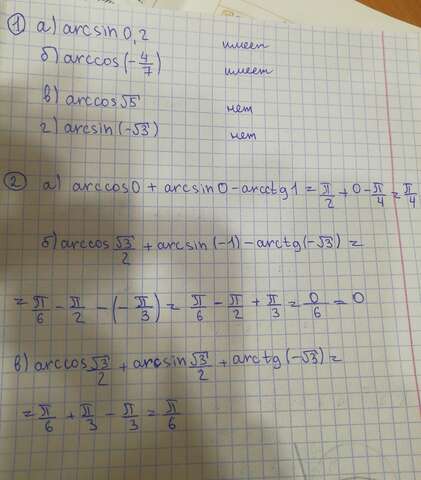 ① а) arcsin 0,2 имеет
б) arccos(-4/7) имеет
в) arccos √5 нет
г) arcsin(-√3) нет
② а) arccos 0 + arcsin 0 - arcctg 1 = π/2 + 0 - π/4 = π/4
б) arccos √3/2 + arcsin (-1) - arctg (-√3) =
= π/6 - π/2 - (-π/3) = π/6 - π/2 + π/3 = 0/6 = 0
в) arccos √3/2 + arcsin √3/2 + arctg (-√3) =
= π/6 + π/3 - π/3 = π/6